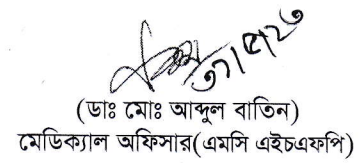 ৩১/৫/২৩
(ডাঃ মোঃ আব্দুল বাতিন)
মেডিক্যাল অফিসার(এমসি এইচএফপি)